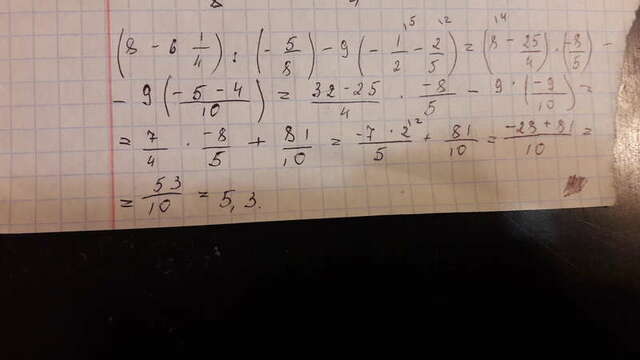 (8 - 6 1/4) : (- 5/8) - 9 (- 1/2 ^{\5} - 2/5 ^{\2}) = (8 ^{\4} - 25/4) · (-8/5) -
- 9 ((-5-4)/10) = (32-25)/4 · -8/5 - 9 · (-9/10) =
= 7/4 · -8/5 + 81/10 = (-7 · 2 ^{\2})/5 + 81/10 = (-28+81)/10 =
= 53/10 = 5,3.